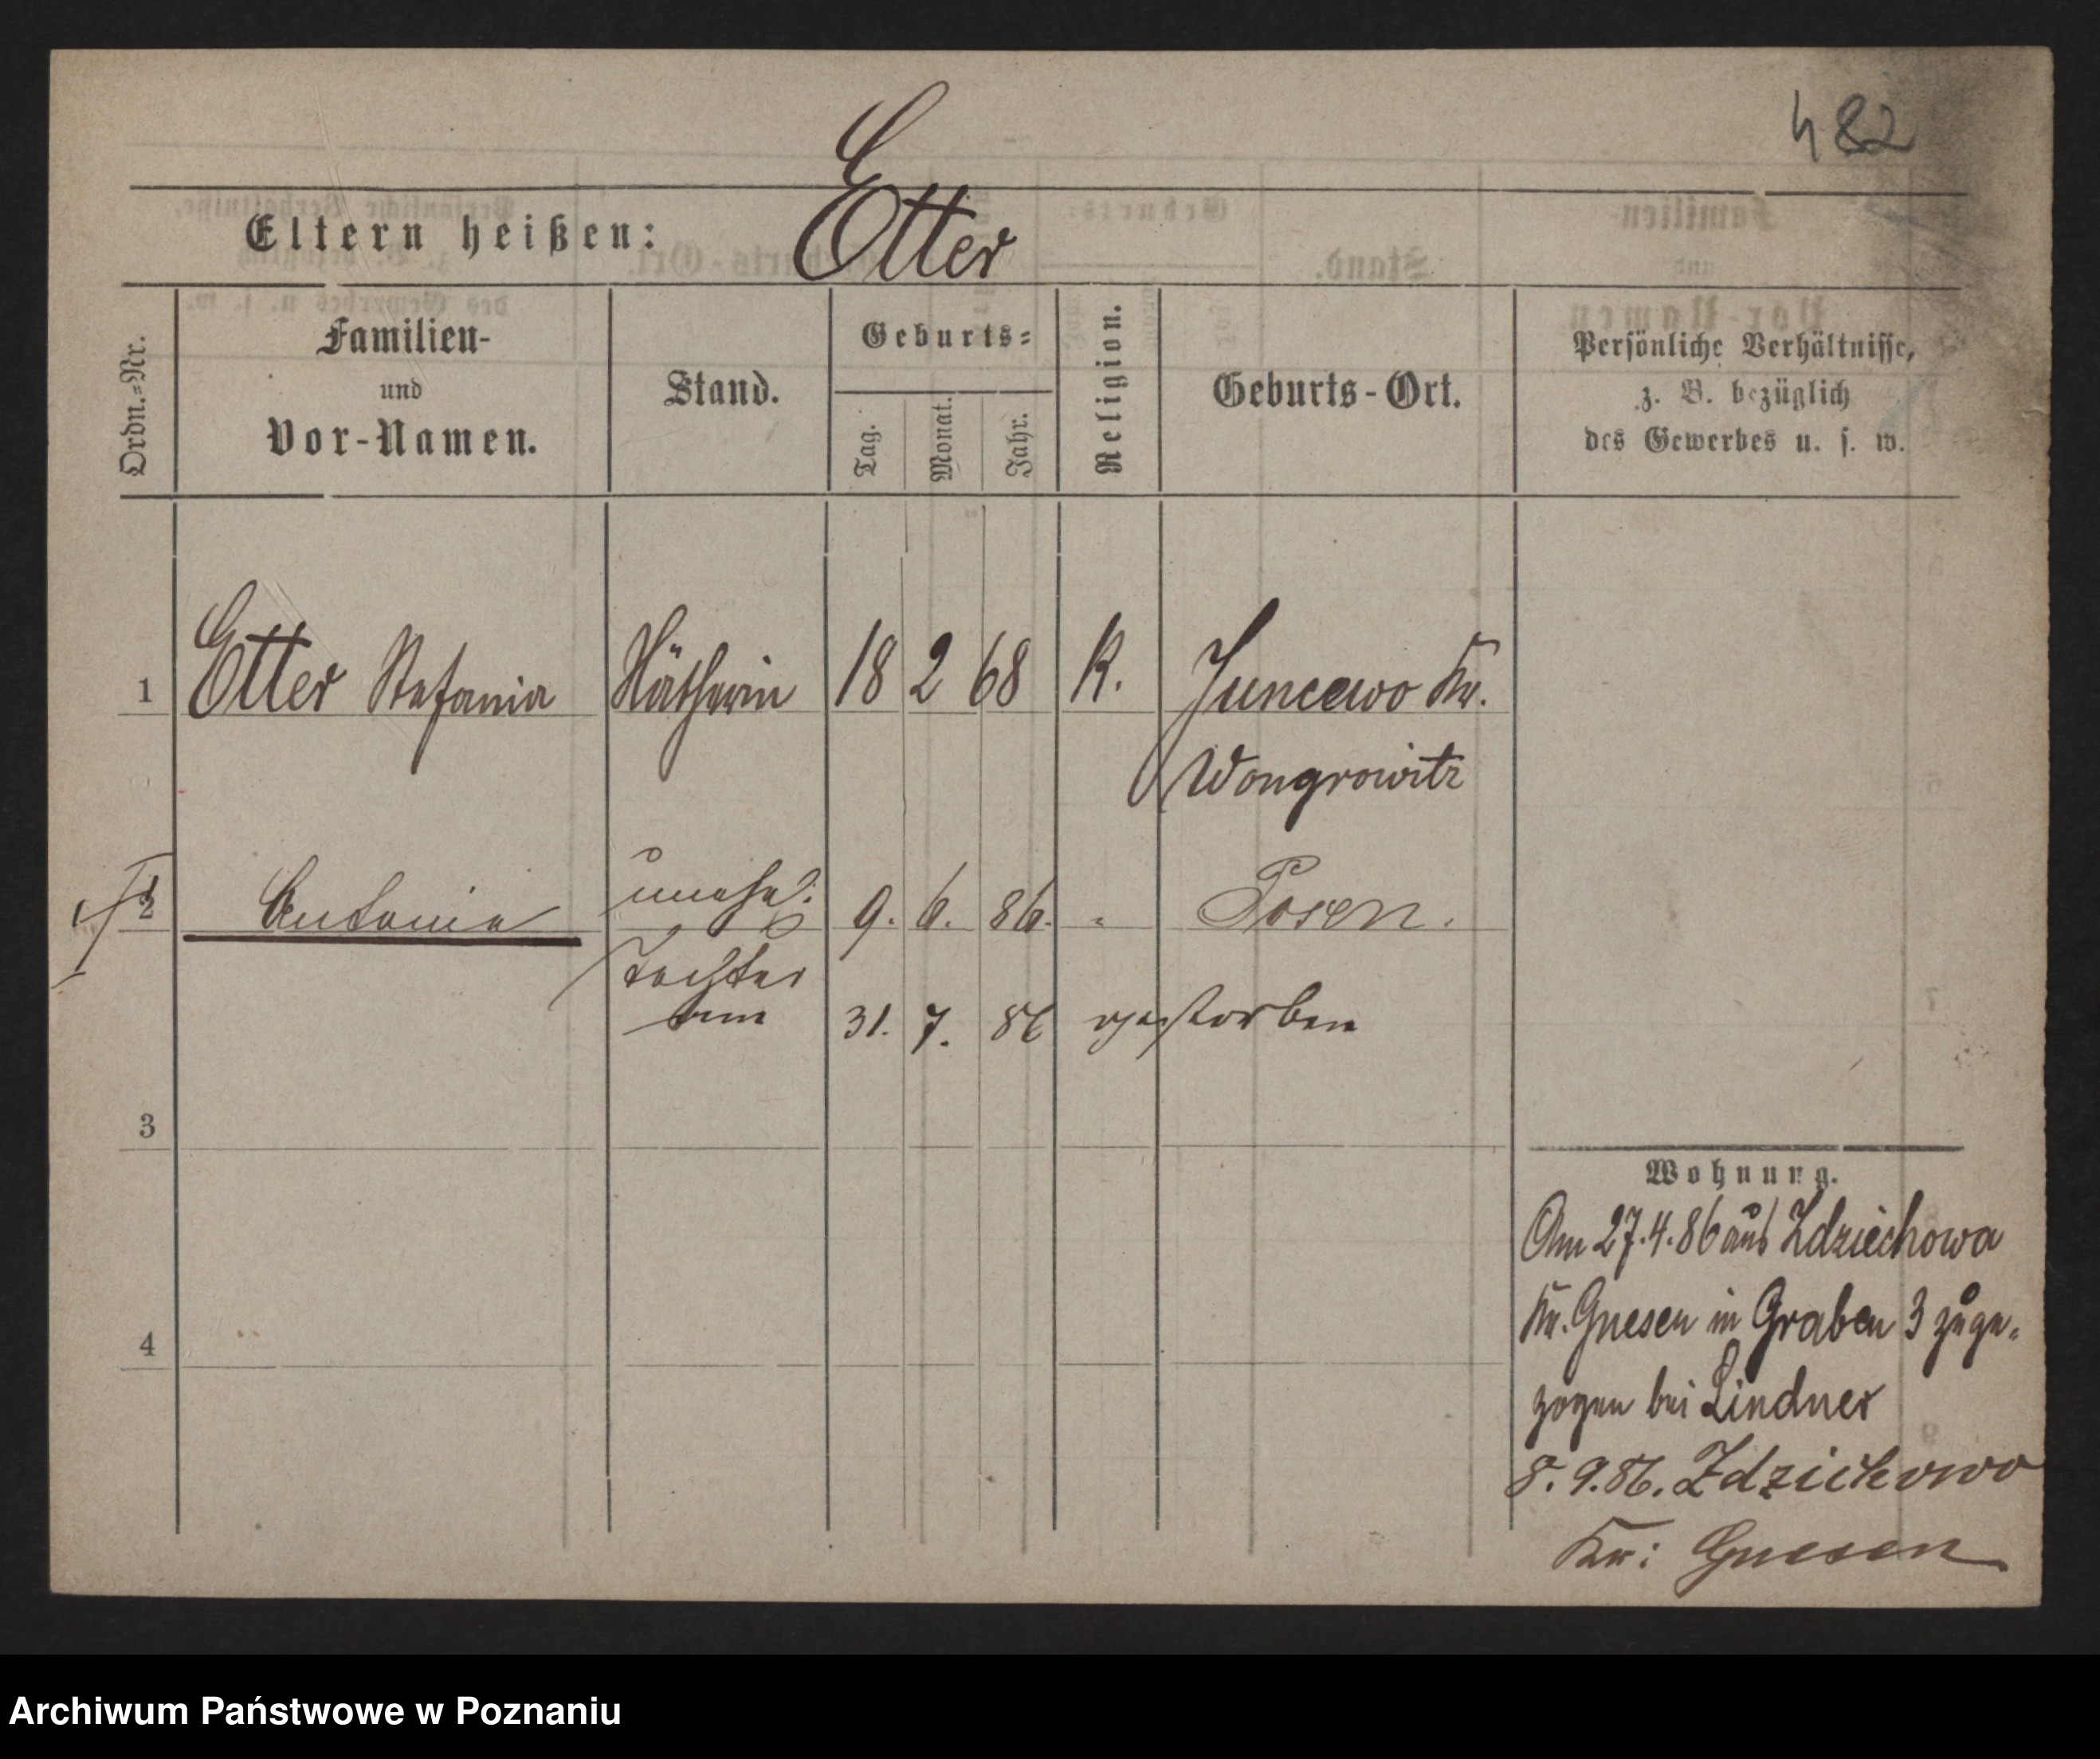 482
Eltern heißen: Etter
Ordn.=Nr.
Familien-
und
Vor-Namen.
Stand.
Geburts=
Tag.
Monat.
Jahr.
Religion.
Geburts-Ort.
Persönliche Verhältnisse,
z. B. bezüglich
des Gewerbes u. s. w.
1 Etter Stefania Nätherin 18 2 68 K. Juncewo Kr.
Wongrowitz
2 Antonia unehel: 9. 6. 86. " Posen.
Tochter
am 31. 7. 86 gestorben
3
4
Wohnung.
Am 27.4.86 aus Zdziechowa
Kr. Gnesen in Graben 3 zuge-
zogen bei Lindner
8. 9. 86. Zdzichowo
Kr: Gnesen
Archiwum Państwowe w Poznaniu